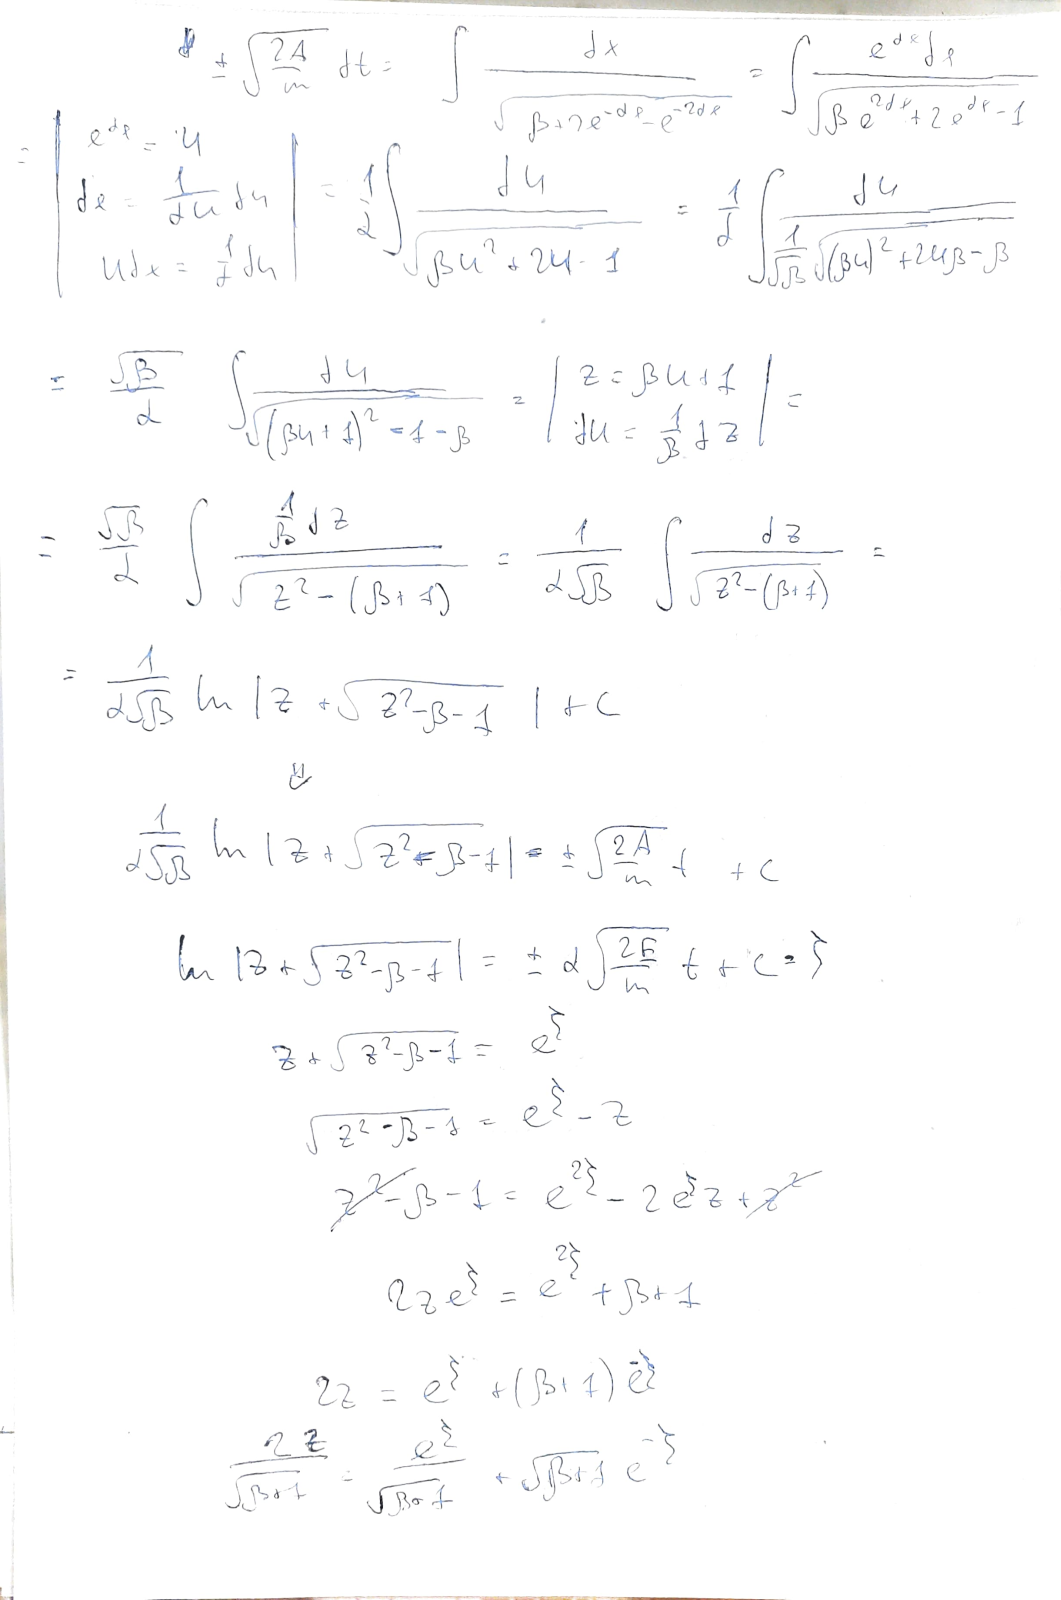 ± √(2A/m) dt = ∫ dx / √(β+2e^(-αx) - e^(-2αx)) = ∫ e^(αx) dx / √(β e^(2αx) + 2e^(αx) - 1)
= | e^(αx) = u ; dx = 1/(αu) du ; u dx = 1/α du | = 1/α ∫ du / √(βu² + 2u - 1) = 1/α ∫ du / (1/√β √((βu)² + 2uβ - β))
= √β/α ∫ du / √((βu+1)² - 1 - β) = | z = βu+1 ; du = 1/β dz | =
= √β/α ∫ 1/β dz / √(z² - (β+1)) = 1/(α√β) ∫ dz / √(z² - (β+1)) =
= 1/(α√β) ln |z + √(z² - β - 1)| + C
⇓
1/(α√β) ln |z + √(z² - β - 1)| = ± √(2A/m) t + C
ln |z + √(z² - β - 1)| = ± α √(2E/m) t + C = ξ
z + √(z² - β - 1) = e^ξ
√(z² - β - 1) = e^ξ - z
z² - β - 1 = e^(2ξ) - 2e^ξ z + z²
2z e^ξ = e^(2ξ) + β + 1
2z = e^ξ + (β+1) e^(-ξ)
2z/√(β+1) = e^ξ/√(β+1) + √(β+1) e^(-ξ)